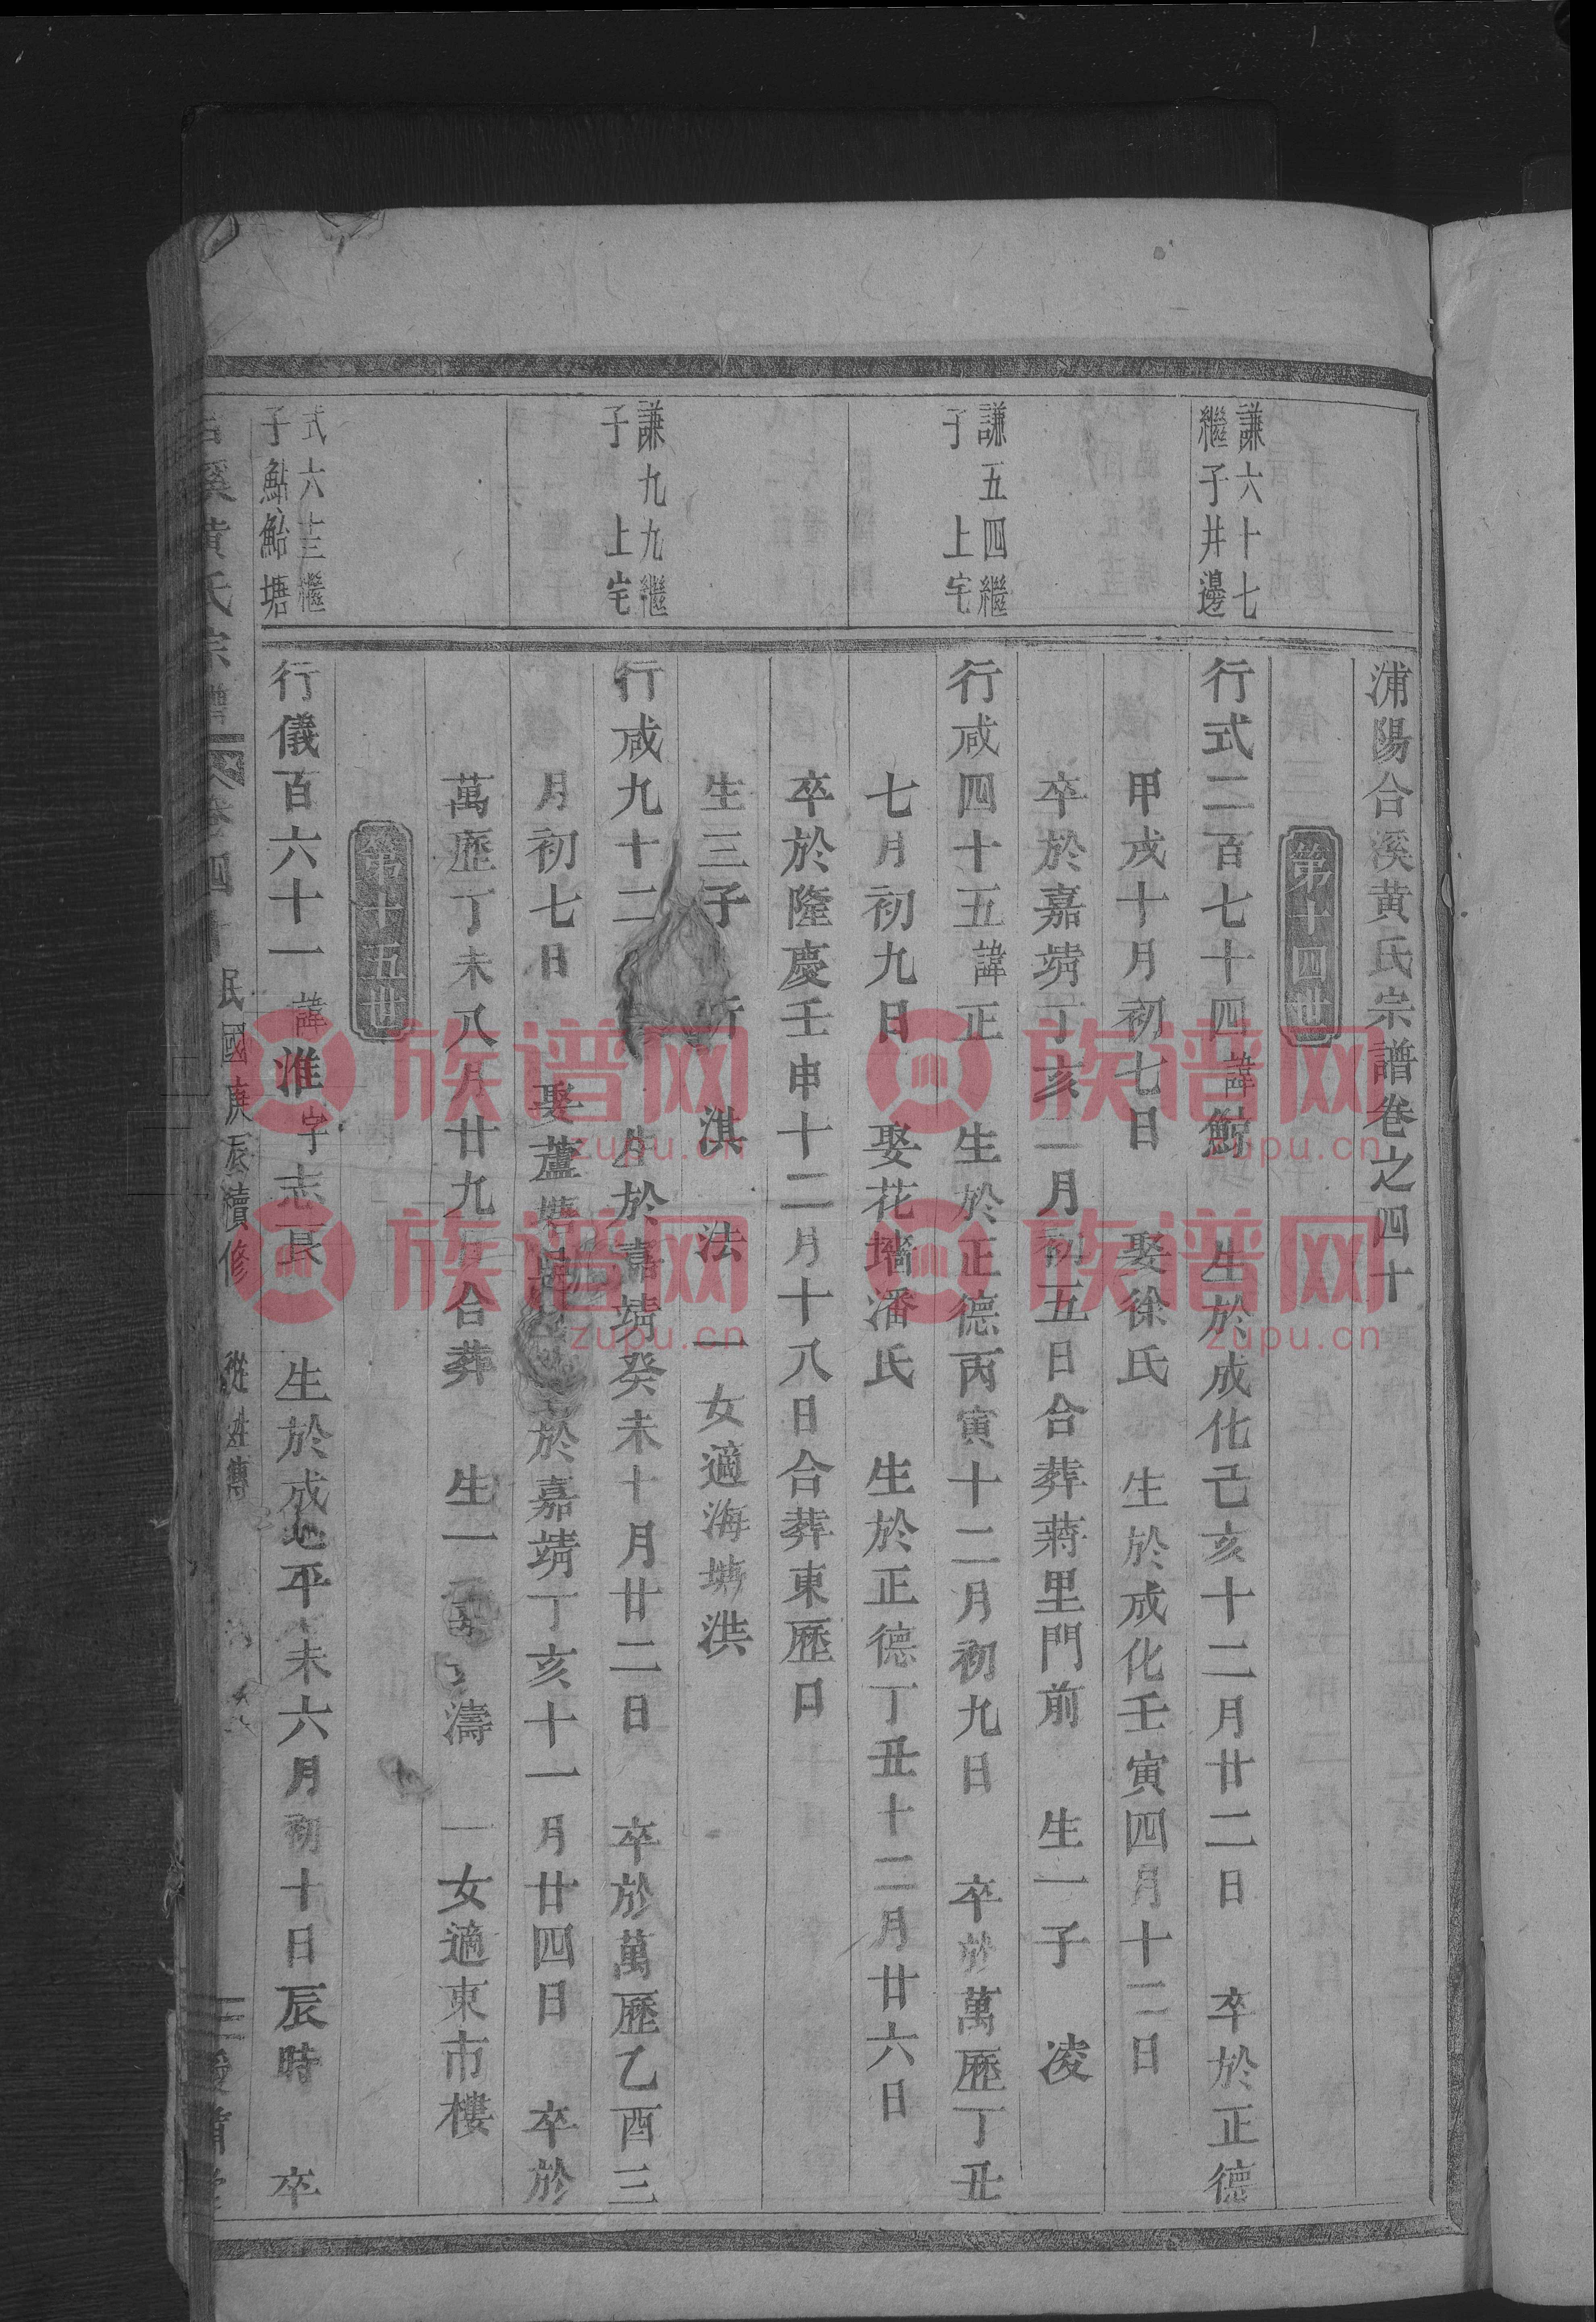 浦陽合溪黃氏宗譜卷之四十
第十四世
謙六十七
繼子井邊
行式二百七十四諱鯨 生於成化己亥十二月廿二日 卒於正德
甲戌十月初七日 娶徐氏 生於成化壬寅四月十二日
卒於嘉靖丁亥二月初五日合葬蔣里門前 生一子 凌
謙五四繼
子上宅
行咸四十五諱正 生於正德丙寅十二月初九日 卒於萬歷丁丑
七月初九日 娶花墻潘氏 生於正德丁丑十二月廿六日
卒於隆慶壬申十二月十八日合葬東歷口
生三子 淇 法 一女適海塘洪
謙九九繼
子上宅
行咸九十二 生於嘉靖癸未十月廿二日 卒於萬歷乙酉三
月初七日 娶蘆塘 於嘉靖丁亥十一月廿四日 卒於
萬歷丁未八月廿九日合葬 生一子 濤 一女適東市樓
第十五世
式六十三繼
子鮎鮐塘
行儀百六十一諱淮字志良 生於成 未六月初十日辰時 卒
合溪黃氏宗譜 卷四十 民國庚辰續修
族谱网
zupu.cn
族谱网
zupu.cn
族谱网
zupu.cn
族谱网
zupu.cn